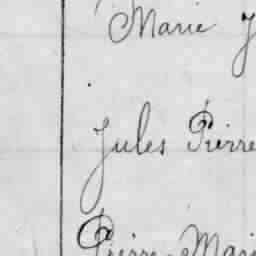 Marie J
Jules Pierre
Pierre Mari